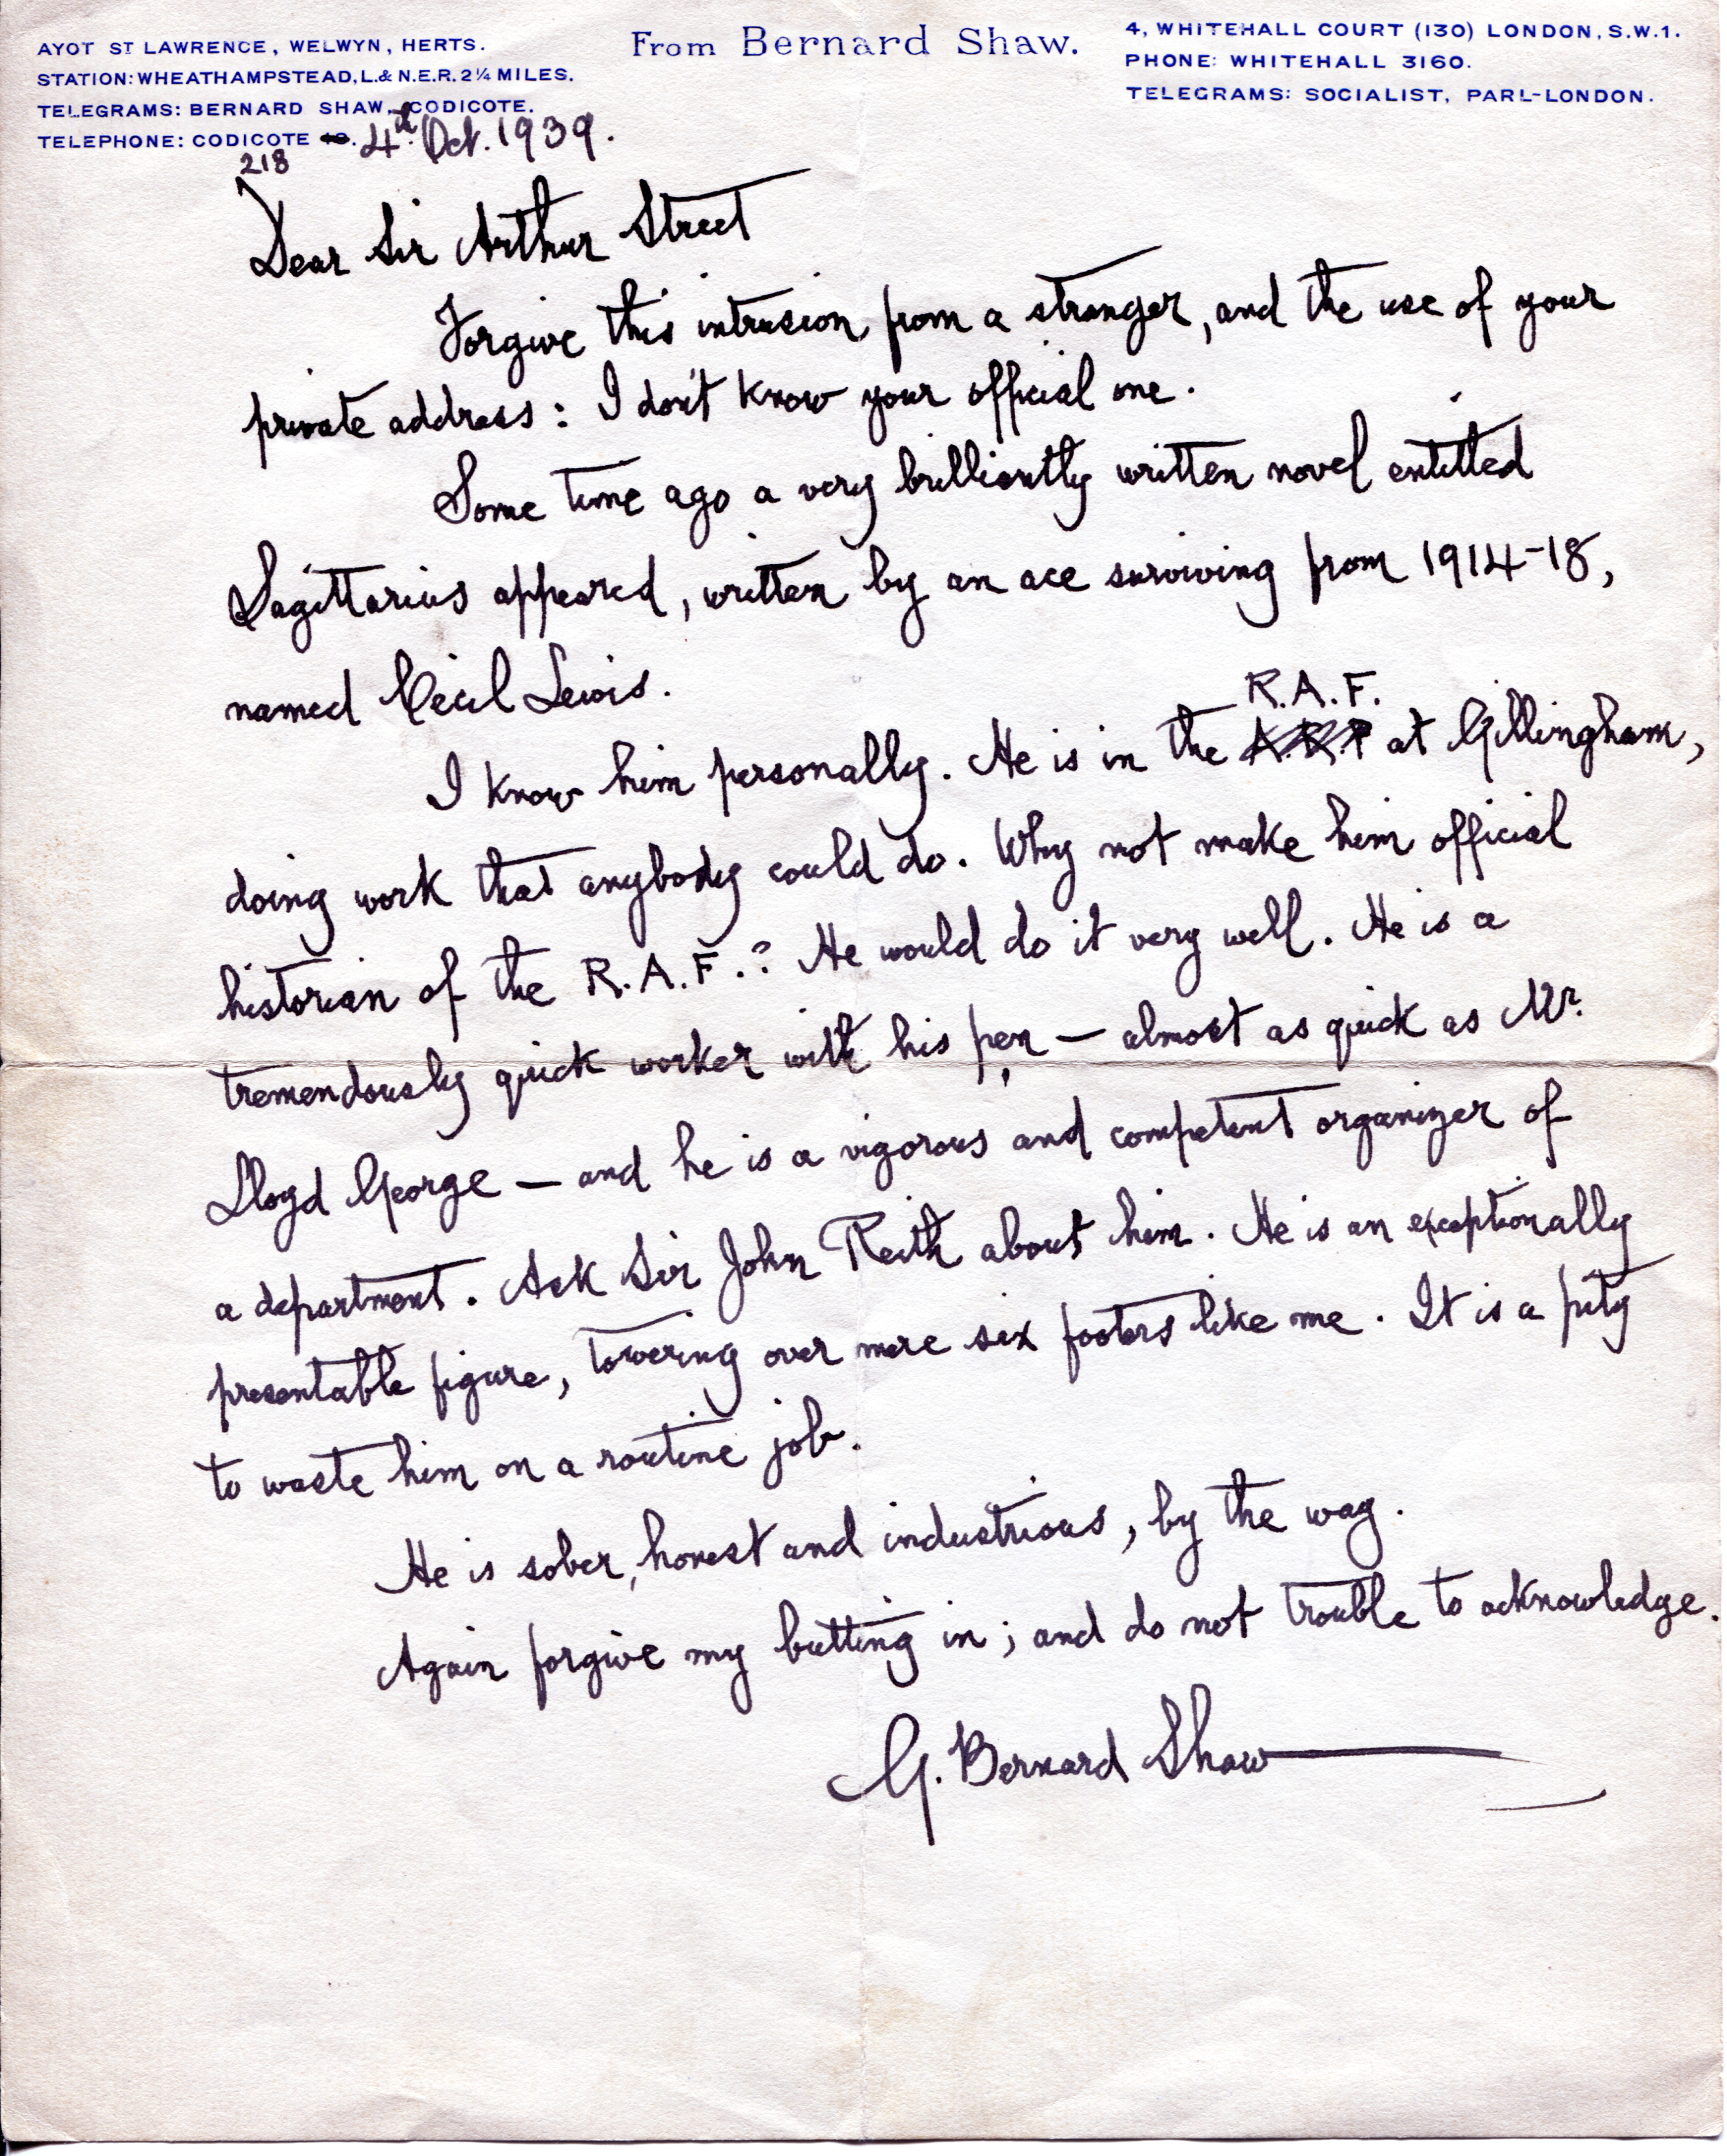 AYOT ST LAWRENCE, WELWYN, HERTS.
STATION: WHEATHAMPSTEAD, L. & N.E.R. 2¼ MILES.
TELEGRAMS: BERNARD SHAW, CODICOTE.
TELEPHONE: CODICOTE
218
From Bernard Shaw.
4, WHITEHALL COURT (130) LONDON, S.W.1.
PHONE: WHITEHALL 3160.
TELEGRAMS: SOCIALIST, PARL-LONDON.
4th Oct. 1939.
Dear Sir Arthur Street
Forgive this intrusion from a stranger, and the use of your
private address: I don't know your official one.
Some time ago a very brilliantly written novel entitled
Sagittarius appeared, written by an ace surviving from 1914-18,
named Cecil Lewis.
R.A.F.
I know him personally. He is in the A.R.P at Gillingham,
doing work that anybody could do. Why not make him official
historian of the R.A.F.? He would do it very well. He is a
tremendously quick worker with his pen — almost as quick as Mr.
Lloyd George — and he is a vigorous and competent organizer of
a department. Ask Sir John Reith about him. He is an exceptionally
presentable figure, towering over mere six footers like me. It is a pity
to waste him on a routine job.
He is sober, honest and industrious, by the way.
Again forgive my butting in; and do not trouble to acknowledge.
G. Bernard Shaw